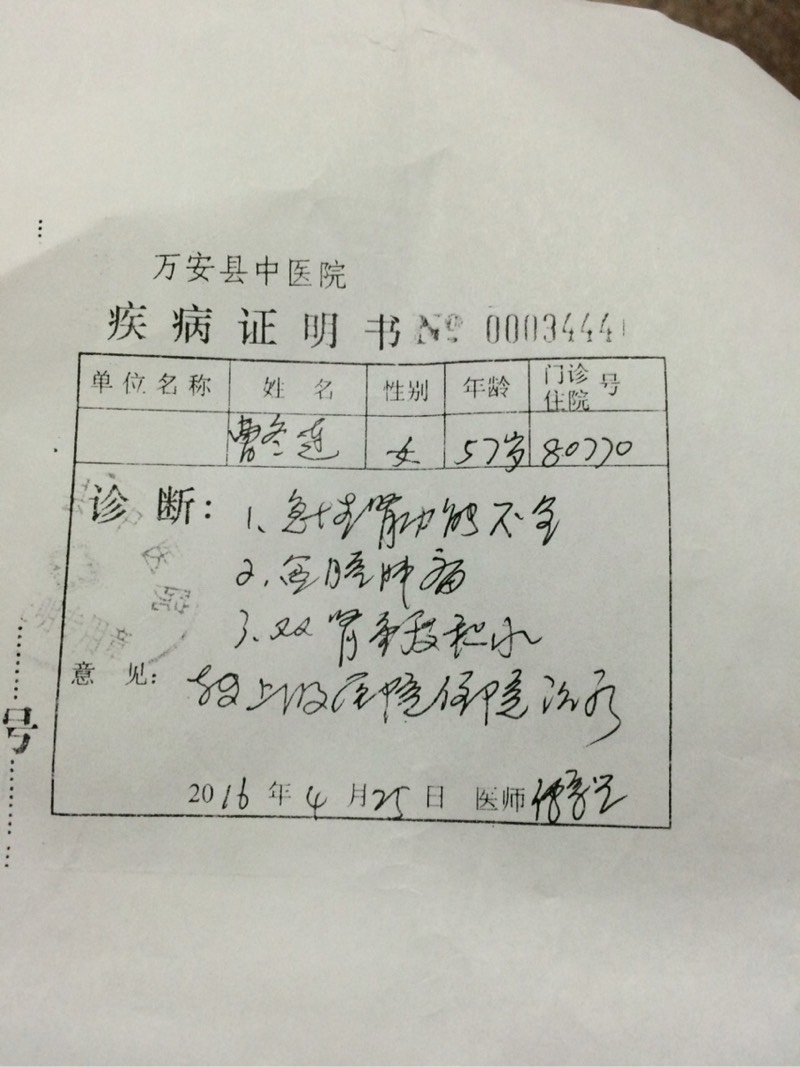 万安县中医院
疾病证明书 № 0003444
单位名称 姓名 性别 年龄 门诊住院号
曹冬莲 女 57岁 80770
诊断：1、急性肾功能不全
2、盆腔肿瘤
3、双肾重度积水
意见：转上级医院住院治疗
2016年4月25日 医师
号